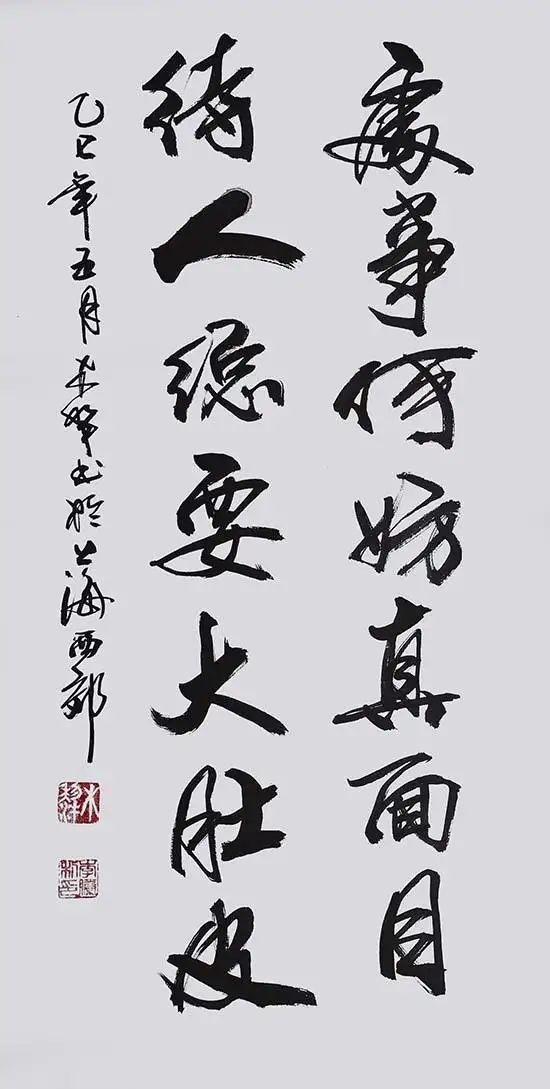 處事何妨真面目
待人總要大肚皮
乙巳年五月 书於上海西郊